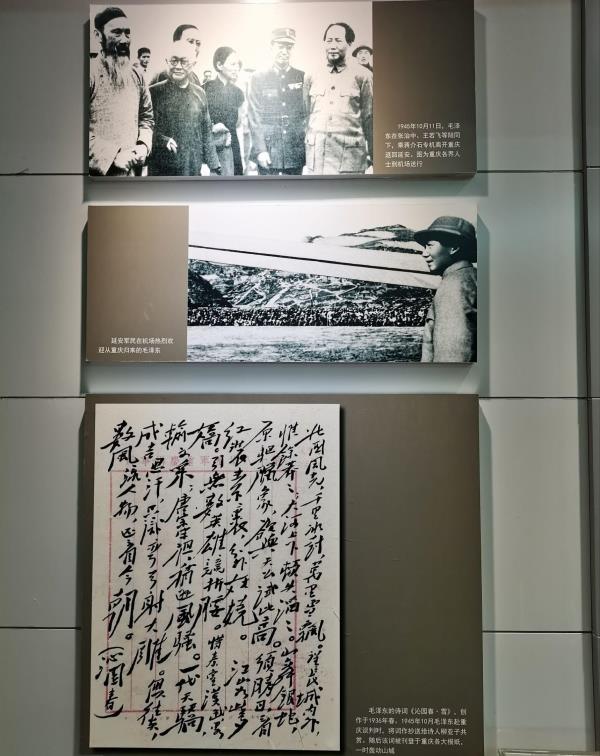 1945年10月11日，毛泽
东在张治中、王若飞等陪同
下，乘蒋介石专机离开重庆
返回延安。图为重庆各界人
士到机场送行
延安军民在机场热烈欢
迎从重庆归来的毛泽东
北國風光，千里冰封，萬里雪飄。望長城內外，
惟餘莽莽；大河上下，頓失滔滔。山舞銀蛇，
原馳臘象，欲與天公試比高。須晴日，看
紅裝素裹，分外妖嬈。江山如此多
嬌，引無數英雄競折腰。惜秦皇漢武，略
輸文采；唐宗宋祖，稍遜風騷。一代天驕，
成吉思汗，只識彎弓射大雕。俱往矣，
數風流人物，還看今朝。
（沁園春）
毛泽东的诗词《沁园春·雪》，创
作于1936年春。1945年10月毛泽东赴重
庆谈判时，将词作抄送给诗人柳亚子共
赏，随后该词被刊登于重庆各大报纸，
一时轰动山城